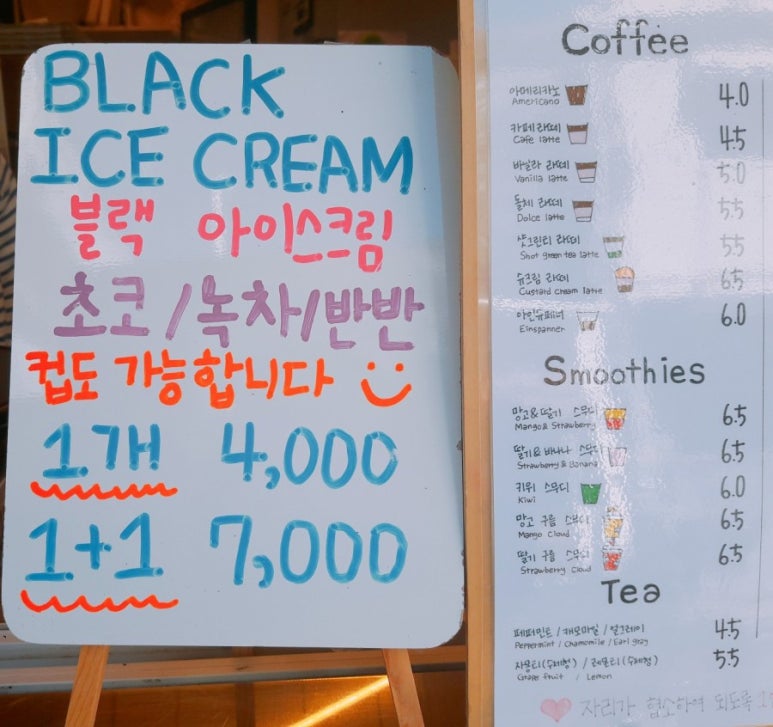 BLACK
ICE CREAM
블랙 아이스크림
초코/녹차/반반
컵도 가능합니다
1개 4,000
1+1 7,000
Coffee
아메리카노 4.0
Americano
카페 라떼 4.5
Cafe latte
바닐라 라떼 5.0
Vanilla latte
돌체 라떼 5.5
Dolce latte
샷그린티 라떼 5.5
Shot green tea latte
슈크림 라떼 6.5
Custard cream latte
아인슈페너 6.0
Einspanner
Smoothies
망고&딸기 스무디 6.5
Mango & Strawberry
딸기&바나나 스무디 6.5
Strawberry & Banana
키위 스무디 6.0
Kiwi
망고 구름 스무디 6.5
Mango Cloud
딸기 구름 스무디 6.5
Strawberry Cloud
Tea
페퍼민트 / 캐모마일 / 얼그레이 4.5
Peppermint / Chamomile / Earl gray
자몽티(수제청) / 레몬티(수제청) 5.5
Grape fruit / Lemon
자리가 협소하여 되도록